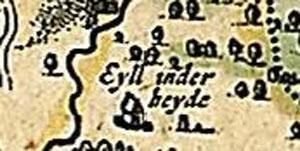 Eyll inder
heyde